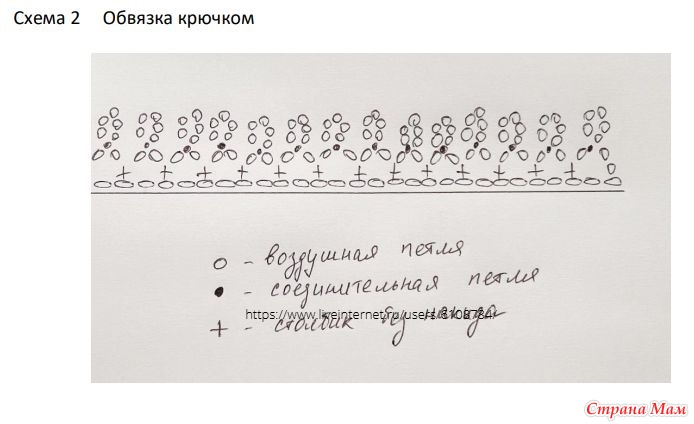 Схема 2 Обвязка крючком
- воздушная петля
- соединительная петля
https://www.liveinternet.ru/users/8108784/
+ - столбик без накида
Страна Мам